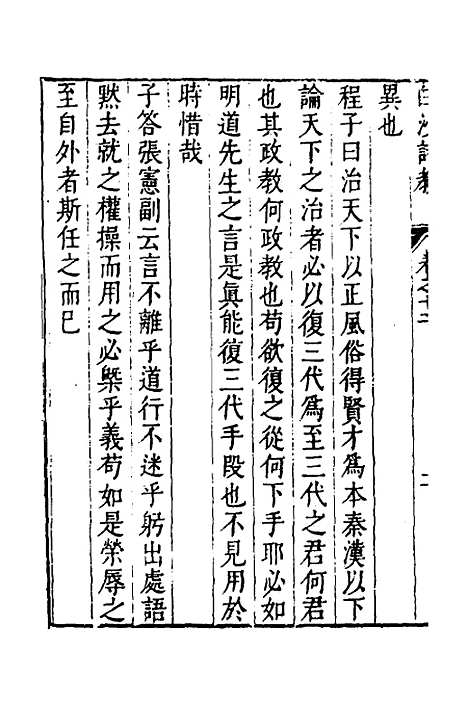 白沙語教 卷之十二 二
異也
程子曰治天下以正風俗得賢才爲本秦漢以下
論天下之治者必以復三代爲至三代之君何君
也其政教何政教也苟欲復之從何下手耶必如
明道先生之言是眞能復三代手段也不見用於
時惜哉
子答張憲副云言不離乎道行不迷乎躬出處語
黙去就之權操而用之必槩乎義苟如是榮辱之
至自外者斯任之而已